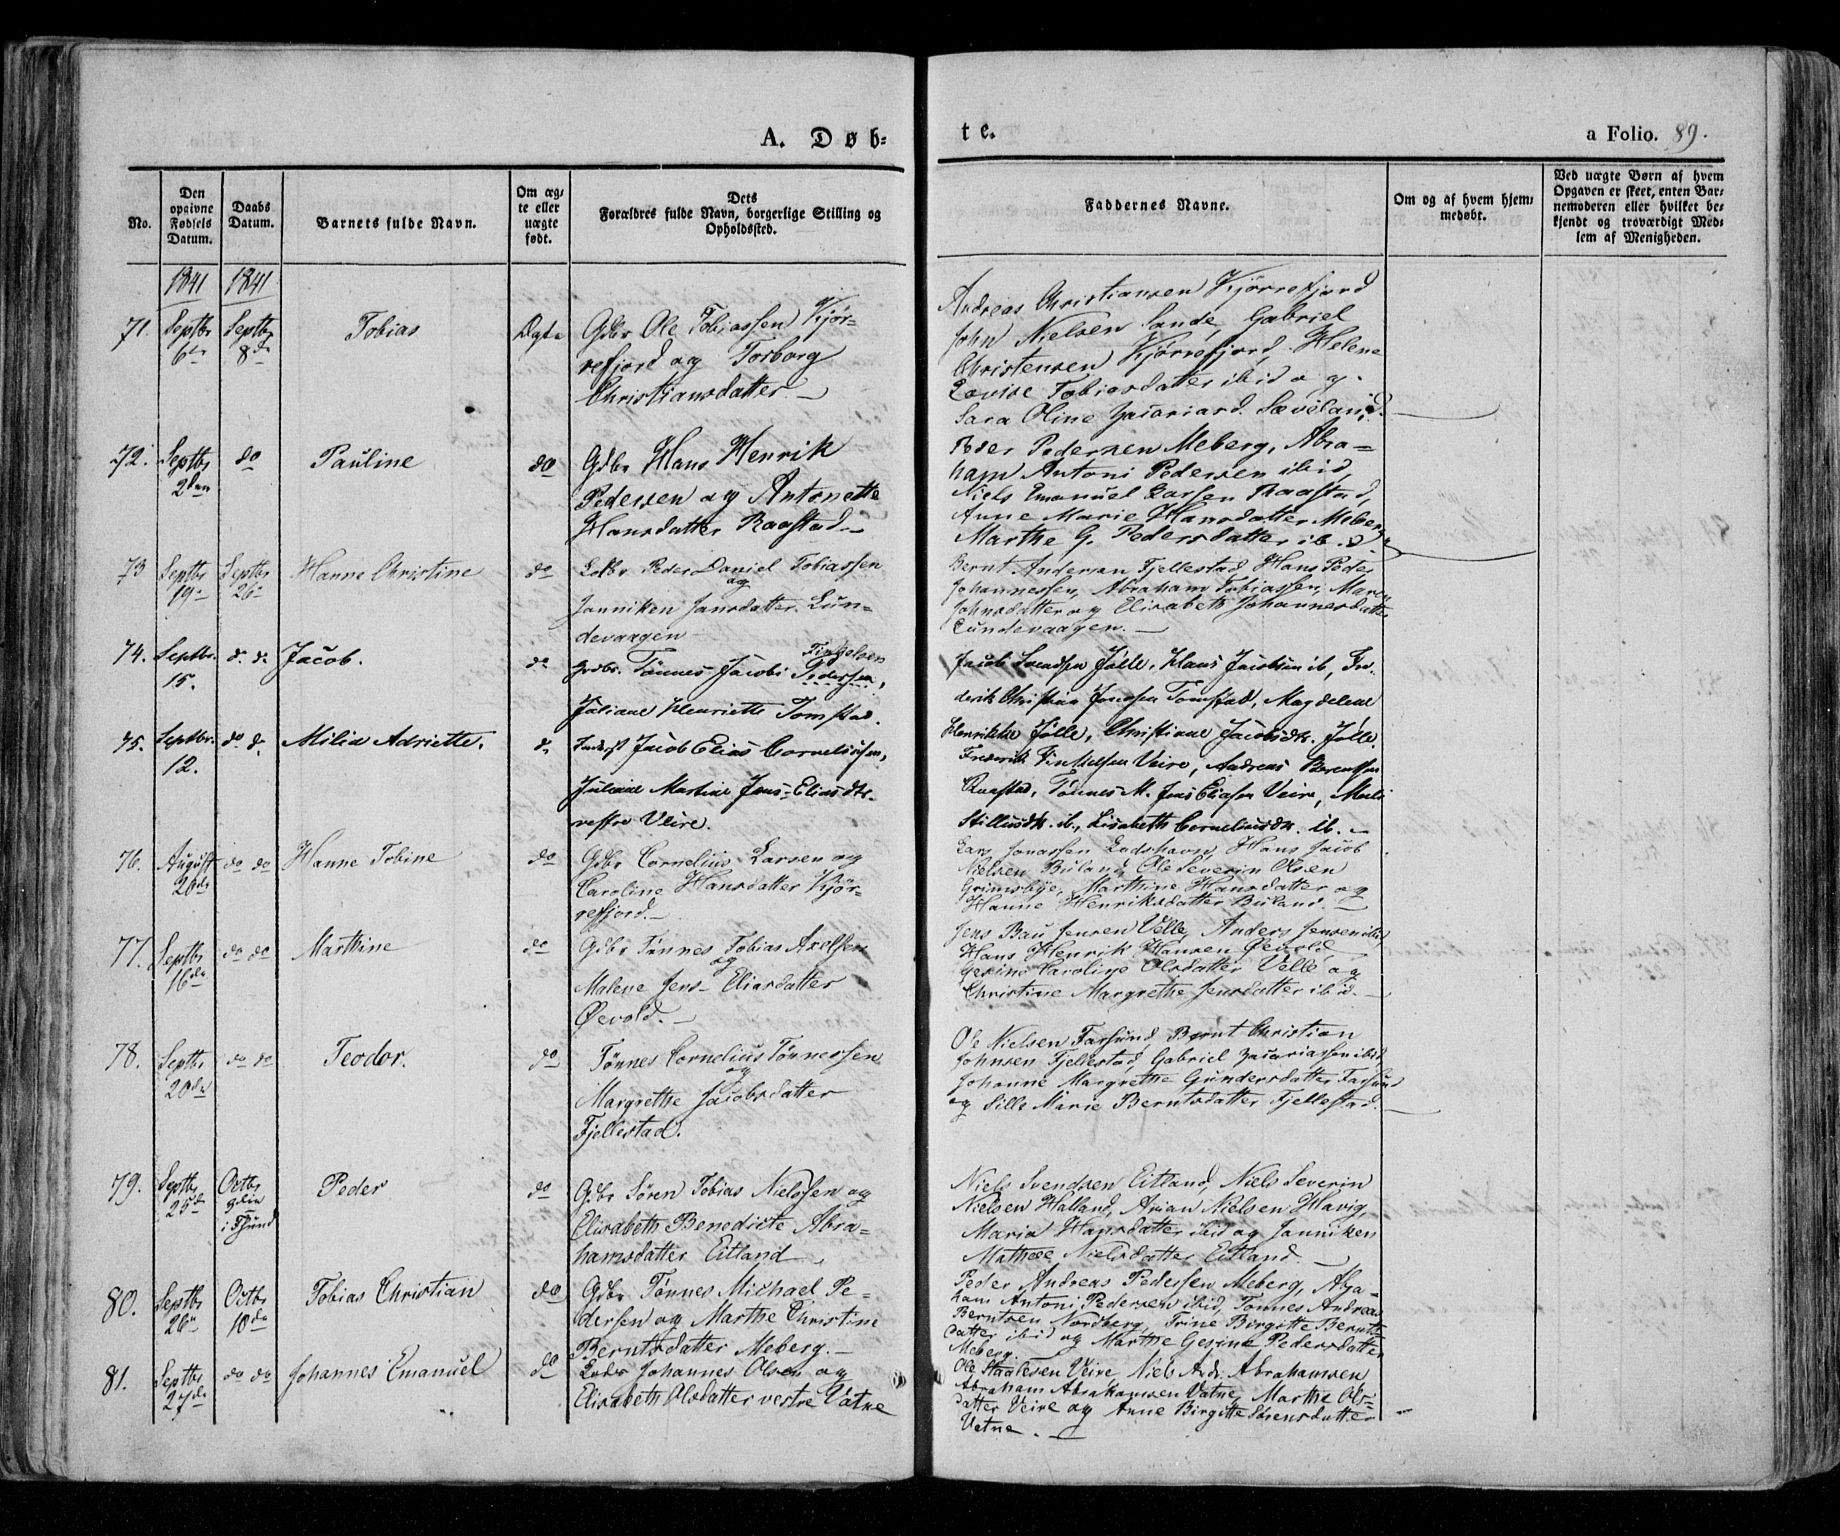 A. Døb-
te.
a Folio. 89.
No.
Den
opgivne
Fødsels
Datum.
Daabs
Datum.
Barnets fulde Navn.
Om æg-
te eller
uægte
født.
Dets
Forældres fulde Navn, borgerlige Stilling og
Opholdssted.
Faddernes Navne.
Om og af hvem hjem-
medøbt.
Ved uægte Børn af hvem
Opgaven er skeet, enten Bar-
nemoderen eller hvilket be-
kjendt og troværdigt Med-
lem af Menigheden.
1841 1841
71. Septbr 6te Septbr 8de Tobias Ægte
Gdbr Ole Tobiassen Kjør-
refjord og Torborg
Christiansdatter. —
Andreas Christiansen Kjørrefjord
John Nielsen Sande, Gabriel
Christensen Kjørrefjord, Helene
Lovise Tobiasdatter ibid og
Sara Oline Zacariasd. Sæveland.
72. Septbr 2den do Pauline do
Gdbr Hans Henrik
Pedersen og Antonette
Hansdatter Raastad. —
Peder Pedersen Meberg, Abra-
ham Antoni Pedersen ibid,
Niels Emanuel Larsen Raastad,
Anne Marie Hansdatter Meberg
Marthe G. Pedersdatter ib.
73 Septbr 19de Septbr 26de Hanne Christine do
Peder Daniel Tobiassen
og
Janniken Jansdatter Lun-
devaagen —
Bernt Andersen Fjellestad, Hans Peder
Johannessen, Abraham Tobiassen, Maren
Johnsdatter og Elisabeth Johannesdatter
Lundevaagen. —
74. Septbr. 15. d. d. Jacob. do
Gdbr. Tønnes Jacobi Pedersen,
Juliane Henriette Tomstad.
Jacob Svendsen Jølle, Hans Jacobsen ib, Fre-
derik Christian Tomstad, Magdelene
Henrikke Jølle, Christiane Jacobsdtr. Jølle.
75. Septbr. 12. do d. Milia Adriette. d.
Inderst Jacob Elias Corneliussen,
Juliane Martine Jens-Eliasdtr.
vestre Veire.
Frederik Veire, Andreas Berentsen
Raastad, Tønnes M. Jens Eliasen Veire,
ib., Lisabeth Corneliusdtr. ib. —
76. August 20de do do Hanne Tobine do
Gdbr Cornelius Larsen og
Caroline Hansdatter Kjør-
refjord. —
Lars Jonassen Lodshavn, Hans Jacob
Nielsen Buland, Ole Severin Olsen
Grimsbye, Marthine Hansdatter og
Hanne Henriksdatter Buland. —
77. Septbr 16de do do Marthine do
Gdbr Tønnes Tobias Axelsen
og
Malene Jens-Eliasdatter
Øevold. —
Jens Bau Jensen Velle, Anders Jensen ibid,
Hans Henrik Hansen Øevold,
Gesine Caroline Olsdatter Velle og
Christine Margrethe Jensdatter ibid. —
78. Septbr 20de do do Teodor. do
Tønnes Cornelius Tønnessen
og
Margrethe Jacobsdatter
Fjellestad.
Ole Nielsen Farsund, Bernt Christian
Johnsen Fjellestad, Gabriel Zacariassen ibid
Johanne Margrethe Gundersdatter Farsund
og Sille Marie Berntsdatter Fjellestad.
79. Septbr 25de Octbr 3die i Fsund Peder do
Gdbr Søren Tobias Nielssen og
Elisabeth Benedicte Abra-
hamsdatter Eitland —
Niels Svendsen Eitland, Niels Severin
Nielsen Halland, Arian Nielsen Havig,
Maria Hansdatter ibid og Janniken
Mathea Nielsdatter Eitland. —
80. Septbr 26de Octbr 10de Tobias Christian do
Gdbr Tønnes Michael Pe-
dersen og Marthe Christine
Berntsdatter Meberg. —
Peder Andreas Pedersen Meberg, Abra-
ham Antoni Pedersen ibid, Tønnes Andreas
Berntsen Nordberg, Trine Birgitte Bernts-
datter ibid og Marthe Gesine Pedersdatter
Meberg.
81. Septbr 27de do do Johannes Emanuel do
Johannes Olsen og
Elisabeth Olsdatter vestre Vatne
Ole Staalesen Veire, Niels Andr. Abrahamsen
Abraham Abrahamsen Vatne, Marthe Ols-
datter Veire og Anne Birgitte Sørensdatter
Vatne. —